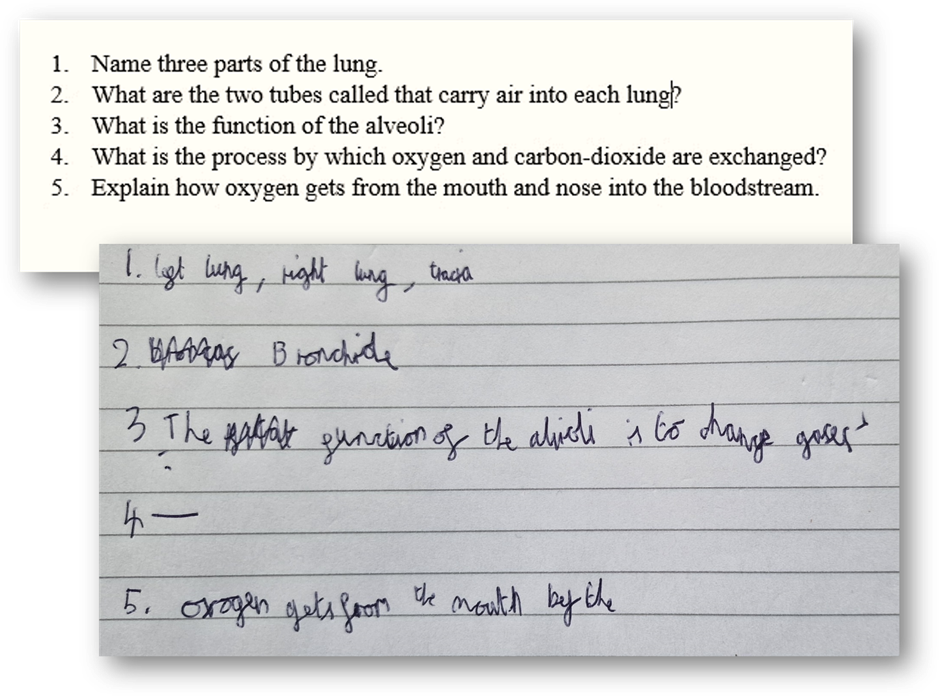 1. Name three parts of the lung.
2. What are the two tubes called that carry air into each lung?
3. What is the function of the alveoli?
4. What is the process by which oxygen and carbon-dioxide are exchanged?
5. Explain how oxygen gets from the mouth and nose into the bloodstream.
1. left lung, right lung,
2. Bronchide
3 The function of the is to change gases
4 —
5. oxogen gets from the mouth by the